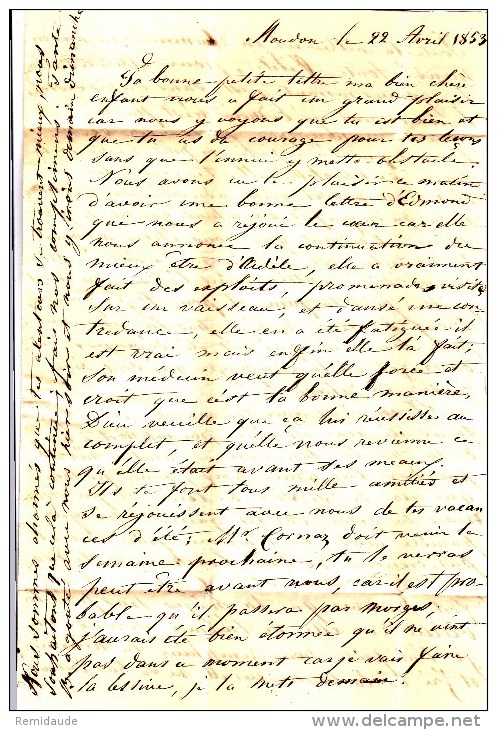 Moudon le 22 Avril 1853
Ta bonne petite lettre ma bien chère
enfant nous a fait un grand plaisir
car nous y voyons que tu est bien et
que tu as du courage pour tes leçons
sans que l'ennui y mette obstacle.
Nous avons eu le plaisir ce matin
d'avoir une bonne lettre d'Edmond
que nous a rejoué le cœur car elle
nous annonce la continuation du
mieux être d'Adèle, elle a vraiment
fait des exploits, promenade, visite
sur un vaisseau, et dansé une con
tredanse, elle en a été fatiguée il
est vrai mais enfin elle l'a fait;
son médecin veut qu'elle force et
croit que c'est la bonne manière,
Dieu veuille que ça lui réussisse au
complet, et qu'elle nous revienne ce
qu'elle était avant ses meaux.
Ils te font tous mille amitiés et
se rejouissent avec nous de tes vacan
ces d'été; Mr Cornaz doit venir la
semaine prochaine, tu le verras
peut être avant nous, car il est pro-
bable qu'il passera par Morges,
j'aurais été bien étonnée qu'il ne vint
pas dans ce moment car je vais faire
la lessive, je la mets demain.
Nous sommes charmés que tes
se trouvent mieux, nous
souhaitons que cela continue, fais nos complimens
avec nous
et nous y irons demain dimanche
Remidaude
www.delcampe.net